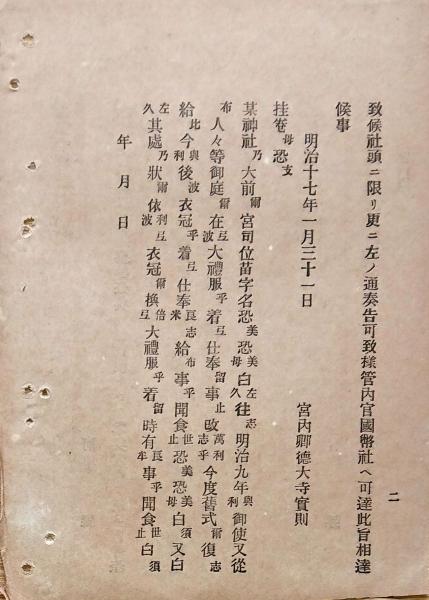 二
致候社頭ニ限リ更ニ左ノ通奏告可致様管內官國幣社ヘ可達此旨相達
候事
明治十七年一月三十一日　宮內卿德大寺實則
挂卷母恐支
某神社乃大前爾宮司位苗字名恐美恐美母白左久往志明治九年與利御使又從
布人々等御庭爾在弖波大禮服乎着弖仕奉留事止改萬利志乎今度舊式爾復志
給此今與利後波衣冠乎着弖仕奉良志米給布事乎聞食世止恐美恐美母白須又白
左久其處乃狀爾依利弖波衣冠爾換倍弖大禮服乎着留時有良牟事乎聞食世止白須
年月日